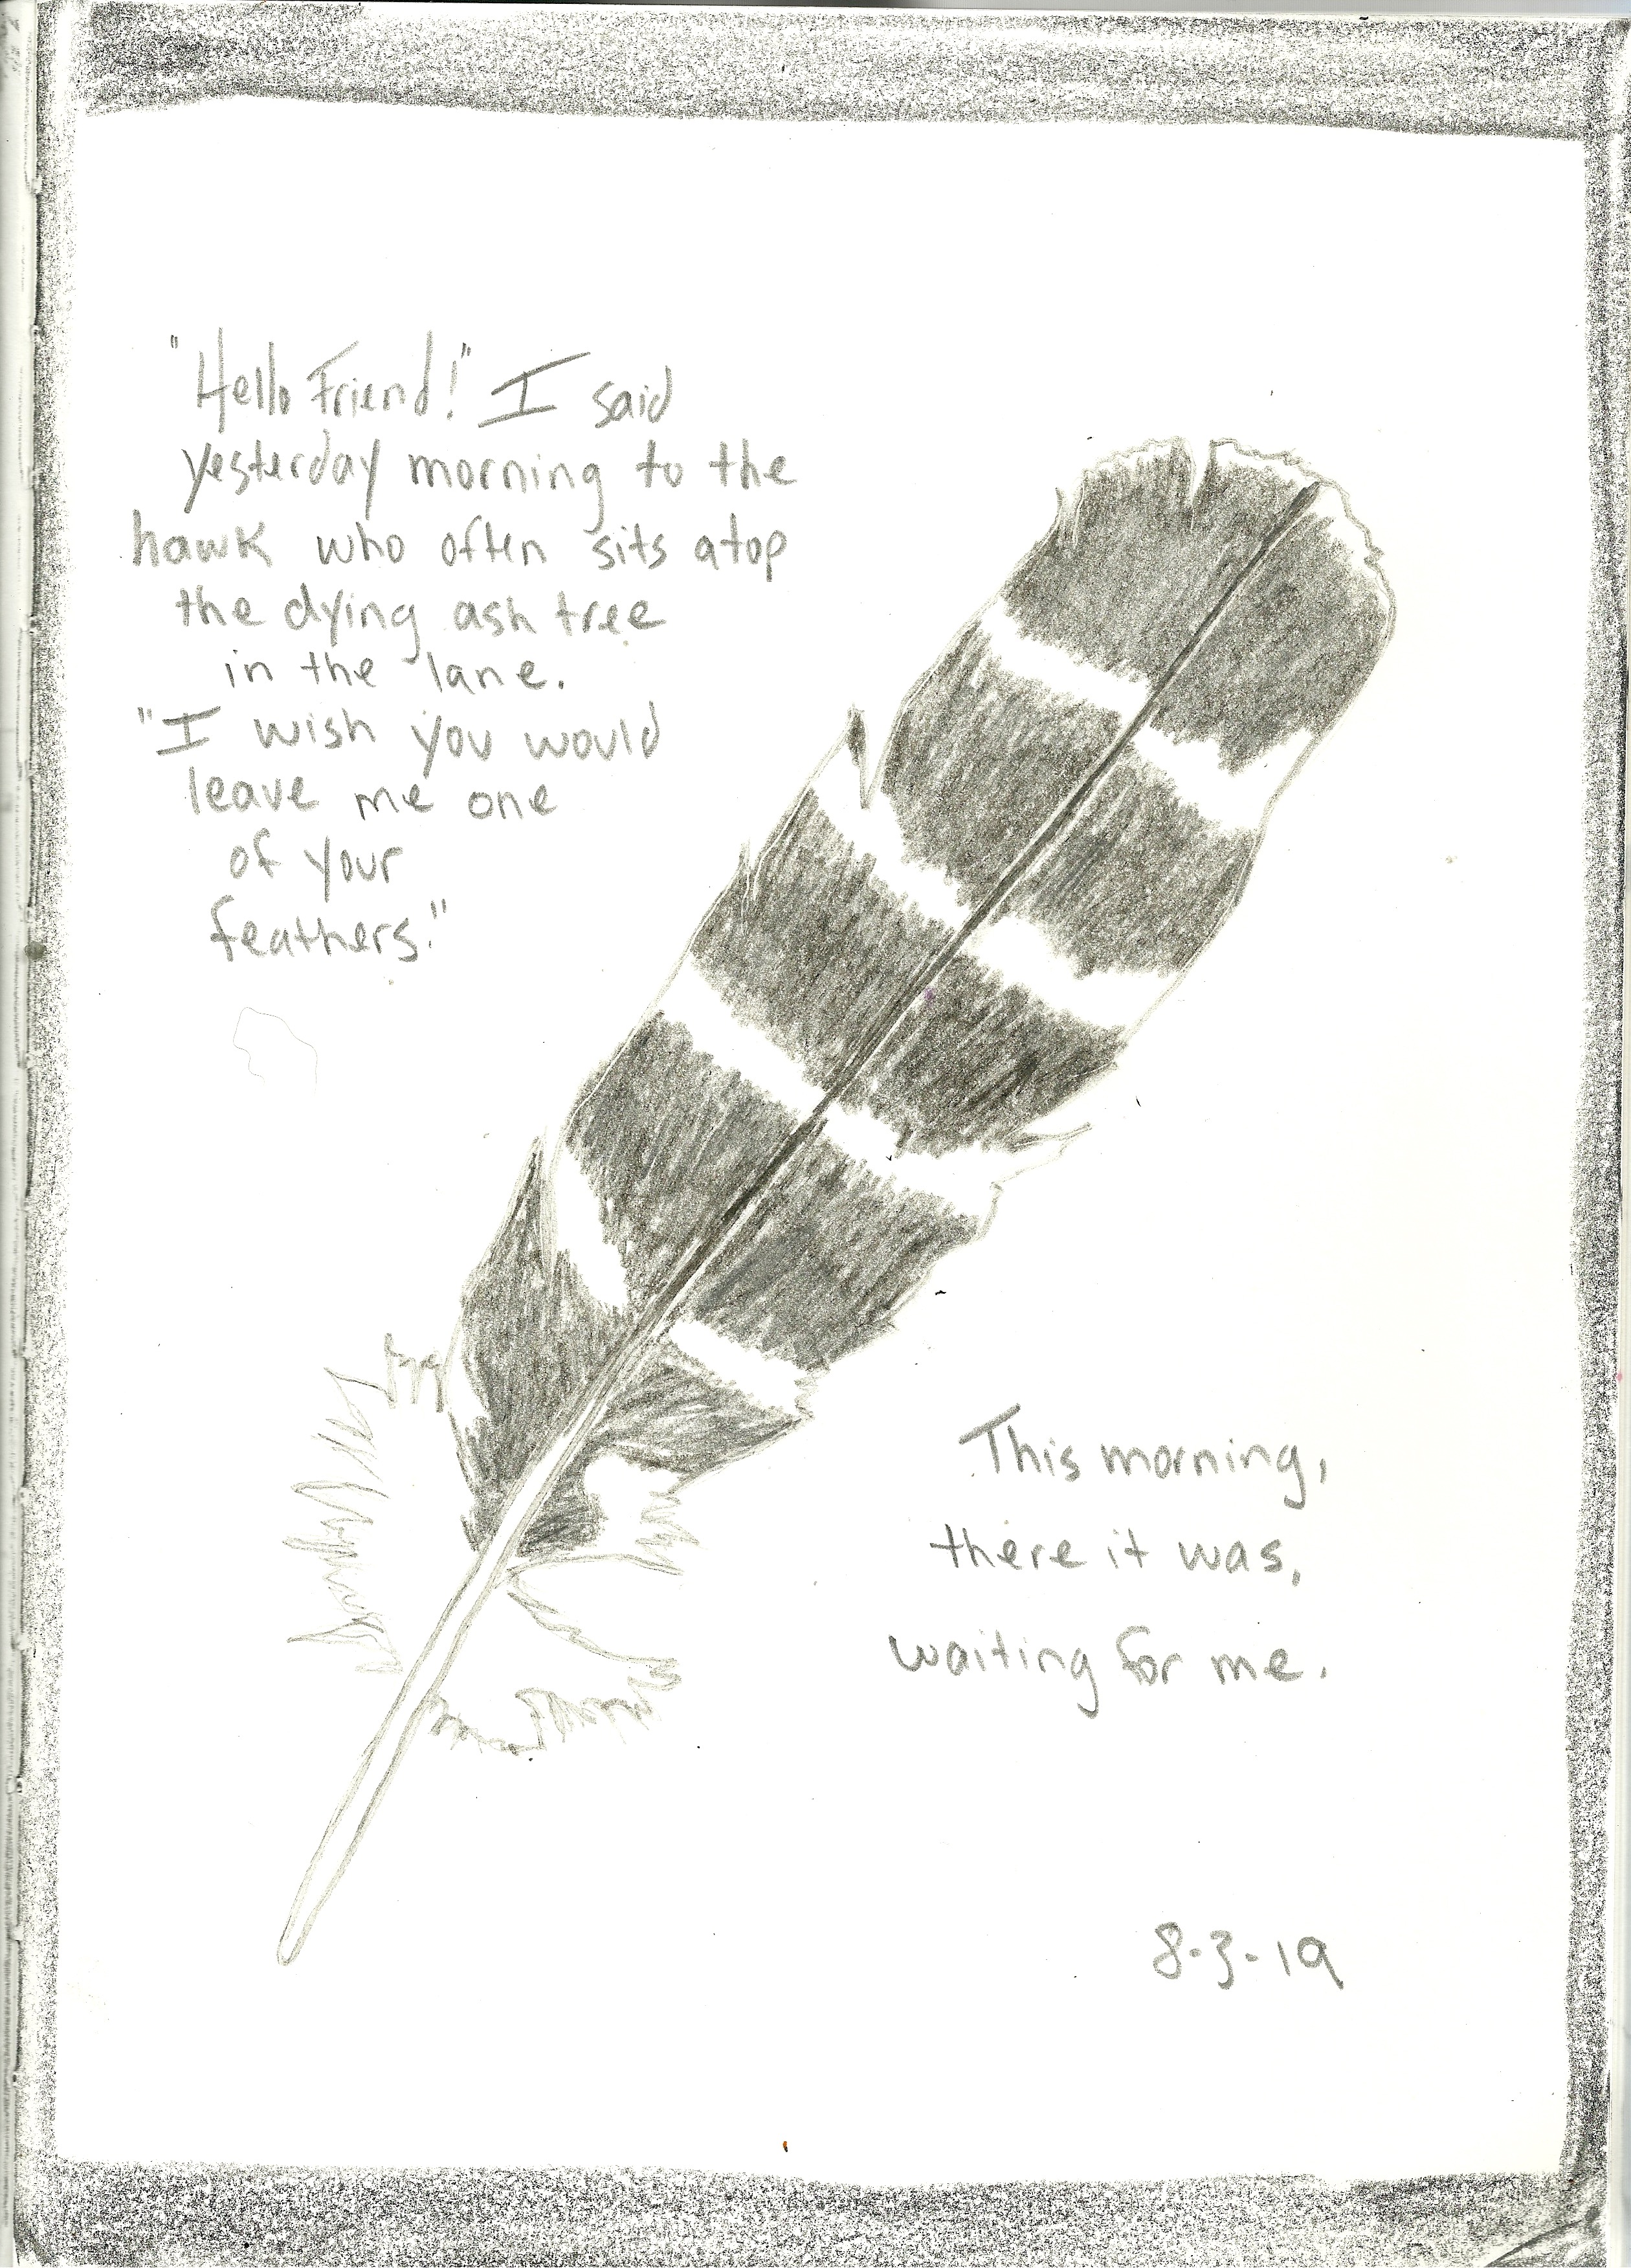 "Hello Friend!" I said
yesterday morning to the
hawk who often sits atop
the dying ash tree
in the lane.
"I wish you would
leave me one
of your
feathers."
This morning,
there it was,
waiting for me.
8-3-19